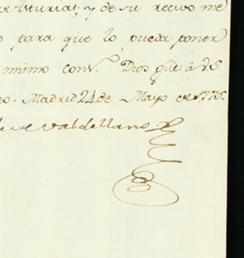 Asturias, y de su recivo me
para que lo pueda poner
mismo con.to Dios gũe á V.S.
Madrid 24 de Mayo de 1776.
de Valdellano